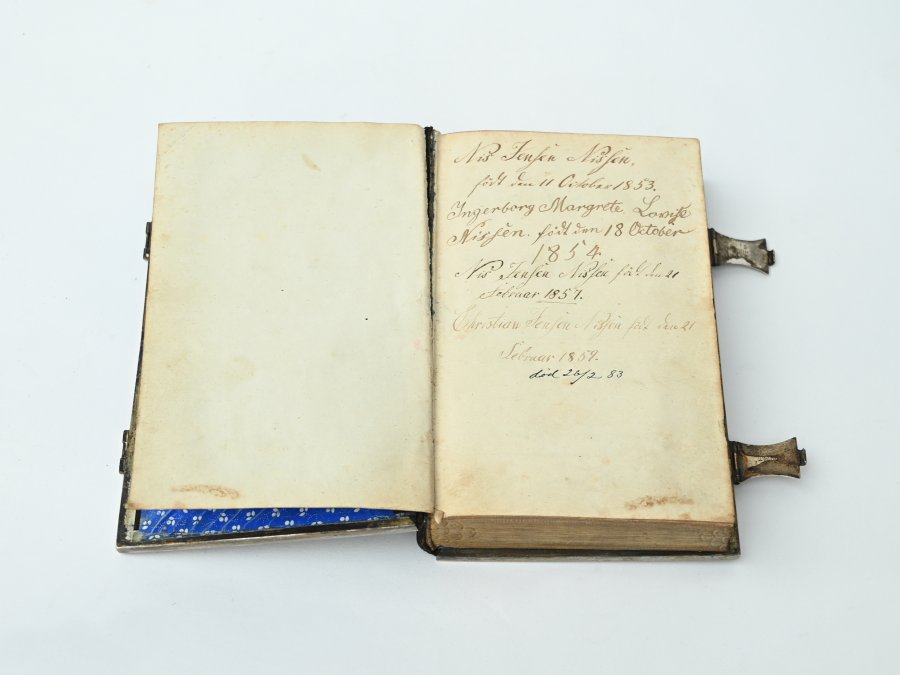 Nis Jensen Nissen,
födt den 11 October 1853.
Ingerborg Margrete Lovise
Nissen. födt den 18 October
1854
Nis Jensen Nissen födt den 21
Februar 1857.
Christian Jensen Nissen födt den 21
Februar 1859.
död 26/2 83